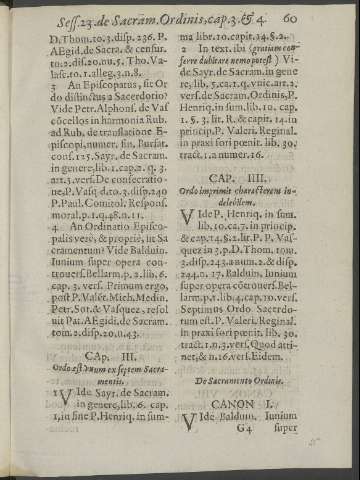 Sess.23.de Sacram.Ordinis,cap.3.& 4. 60
D.Thom.to.3.disp.236. P.
AEgid.de Sacra. & censur.
to.2.dis.20.nu.5. Tho.Va-
lasc.to.1.alleg.3.n.8.
3 An Episcopatus, sit Or
do distinctus a Sacerdotio?
Vide Petr.Alphons. de Vas
cõcellos in harmonia Rub.
ad Rub. de translatione E-
piscopi,numer. fin. Bursat.
cons.125. Sayr. de Sacram.
in genere,lib.1.cap.2. q. 3.
art.3.vers.De consecratio-
ne,P.Vasq.d.to.3.disp.240
P.Paul.Comitol. Respons.
moral.p.1.q.48.n.11.
4 An Ordinatio Episco-
palis verè, & propriè, sit Sa
cramentum? Vide Balduin.
Iunium super opera con-
trouers.Bellarm.p.2.lib.6.
cap.3. vers. Primum ergo,
post P.Valer.Mich.Medin.
Petr.Sot.& Vasquez, resol
uit Pat.AEgidi, de Sacram.
tom.2.disp.20.n.43.
CAP. III.
Ordo est vnum ex septem Sacra-
mentis.
1 Vide Sayr. de Sacram.
in genere,lib.6. cap.
1,in fine P.Henriq.in sum-
ma libr.10.capit.14.§.2.
2 In text. ibi (gratiam con-
ferre dubitare nemo potest) Vi-
de Sayr.de Sacram.in gene
re,lib.5.ca.1.q.vnic.art.2.
vers.de Sacram.Ordinis, P.
Henriq.in sum.lib.10. cap.
1.§.3. lit.R. & capit. 14.in
princip.P. Valeri. Reginal.
in praxi fori pœnit. lib. 30.
tract.1.a numer.16.
CAP. IIII.
Ordo imprimit characterem in-
delebilem.
Vide P. Henriq. in sum.
lib.10.ca.7.in princip.
& cap.14.§.2.lit.P. P. Vas-
quez in 3.p.D.Thom.tom.
3.disp.243.a num.2.& disp.
244.n.17.Balduin. Iunium
super opera cõtrouers.Bel-
larm.p.1.lib.4.cap.10.vers.
Septimus Ordo Sacerdo-
tum est.P.Valeri. Reginal.
in praxi fori pœnit. lib. 30.
tract.1.n.3.vers.Quod atti-
net,& n.16.vers.Eidem.
De Sacramento Ordinis.
CANON I.
Vide Balduin. Iunium
G4 super